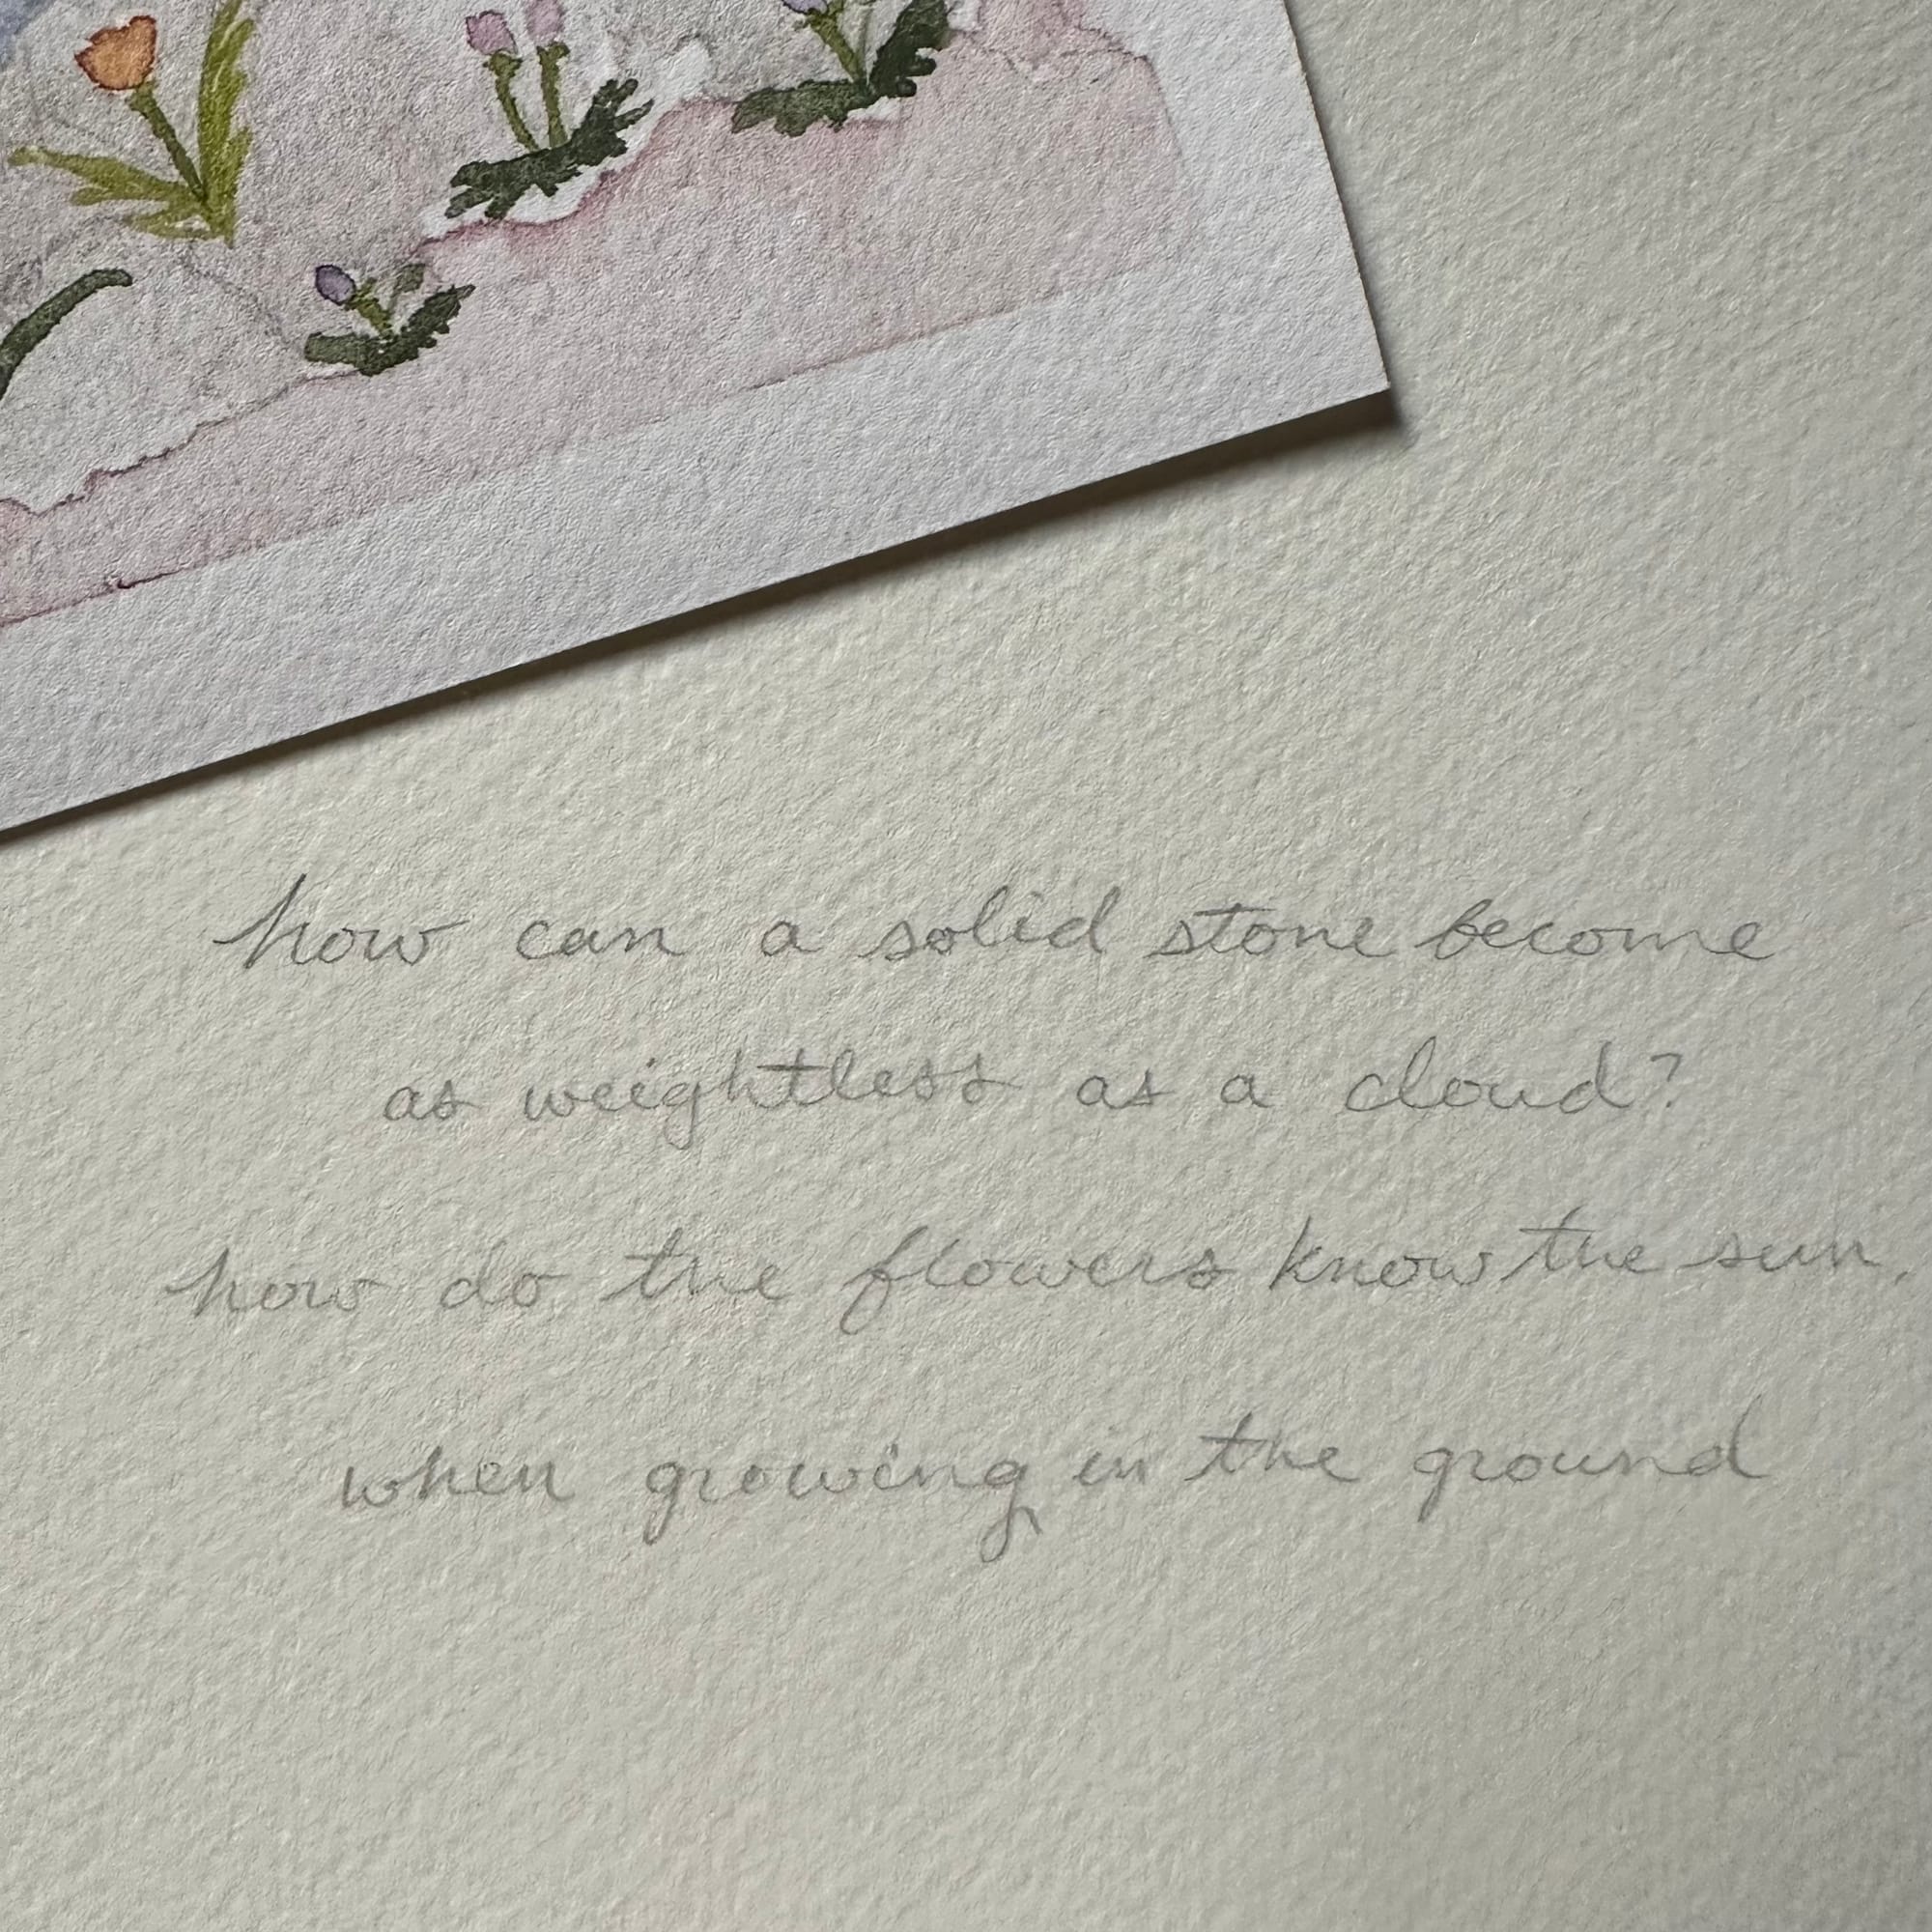 how can a solid stone become
as weightless as a cloud?
how do the flowers know the sun,
when growing in the ground